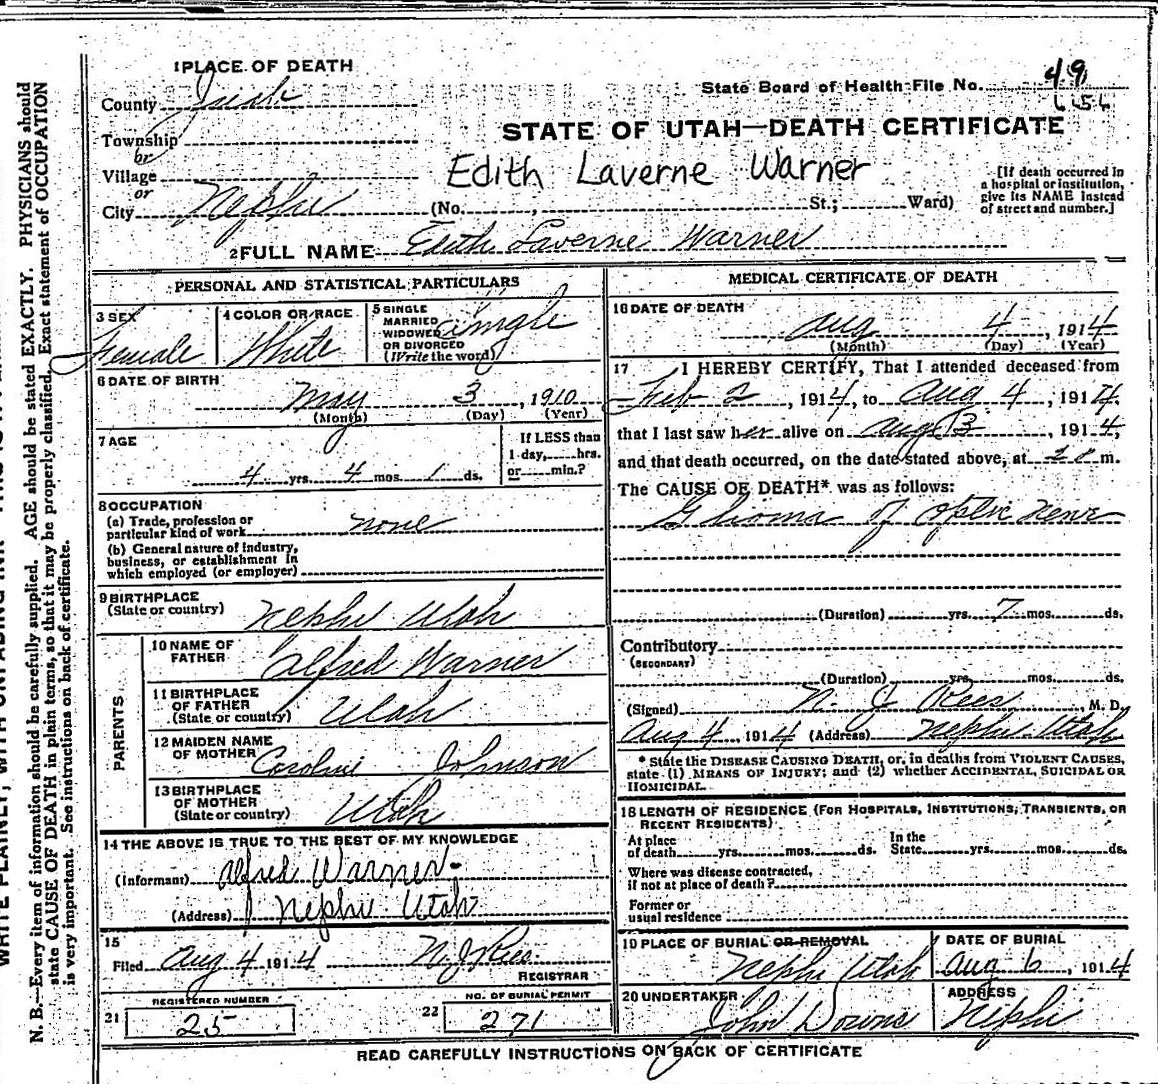 1 PLACE OF DEATH
County Juab
State Board of Health File No. 49
656
Township
or
Village
or
City Nephi
STATE OF UTAH—DEATH CERTIFICATE
Edith Laverne Warner
(No. , St.; Ward)
[If death occurred in
a hospital or institution,
give its NAME instead
of street and number.]
2 FULL NAME Edith Laverne Warner
PERSONAL AND STATISTICAL PARTICULARS
3 SEX
Female
4 COLOR OR RACE
White
5 SINGLE
MARRIED
WIDOWED
OR DIVORCED
(Write the word)
single
6 DATE OF BIRTH
May 3, 1910
(Month) (Day) (Year)
7 AGE
4 yrs. 4 mos. 1 ds.
If LESS than
1 day, hrs.
or min.?
8 OCCUPATION
(a) Trade, profession or
particular kind of work none
(b) General nature of industry,
business, or establishment in
which employed (or employer)
9 BIRTHPLACE
(State or country) Nephi Utah
PARENTS
10 NAME OF
FATHER Alfred Warner
11 BIRTHPLACE
OF FATHER
(State or country) Utah
12 MAIDEN NAME
OF MOTHER Caroline Johnson
13 BIRTHPLACE
OF MOTHER
(State or country) Utah
14 THE ABOVE IS TRUE TO THE BEST OF MY KNOWLEDGE
(Informant) Alfred Warner
(Address) Nephi Utah
15
Filed Aug 4 1914 N. J. Rees
REGISTRAR
REGISTERED NUMBER
21 25
NO. OF BURIAL PERMIT
22 271
MEDICAL CERTIFICATE OF DEATH
16 DATE OF DEATH
Aug 4, 1914
(Month) (Day) (Year)
17 I HEREBY CERTIFY, That I attended deceased from
Feb 2, 1914, to Aug 4, 1914,
that I last saw her alive on Aug 3, 1914,
and that death occurred, on the date stated above, at m.
The CAUSE OF DEATH* was as follows:
Glioma of optic nerve
(Duration) yrs. 7 mos. ds.
Contributory
(SECONDARY)
(Duration) yrs. mos. ds.
(Signed) N. J. Rees, M. D.
Aug 4, 1914 (Address) Nephi Utah
* State the DISEASE CAUSING DEATH, or, in deaths from VIOLENT CAUSES,
state (1) MEANS OF INJURY; and (2) whether ACCIDENTAL, SUICIDAL OR
HOMICIDAL.
18 LENGTH OF RESIDENCE (FOR HOSPITALS, INSTITUTIONS, TRANSIENTS, OR
RECENT RESIDENTS)
At place
of death yrs. mos. ds.
In the
State yrs. mos. ds.
Where was disease contracted,
if not at place of death?
Former or
usual residence
19 PLACE OF BURIAL OR REMOVAL
Nephi Utah
DATE OF BURIAL
Aug 6, 1914
20 UNDERTAKER
John Downs
ADDRESS
Nephi
READ CAREFULLY INSTRUCTIONS ON BACK OF CERTIFICATE
N. B.—Every item of information should be carefully supplied. AGE should be stated EXACTLY. PHYSICIANS should
state CAUSE OF DEATH in plain terms, so that it may be properly classified. Exact statement of OCCUPATION
is very important. See instructions on back of certificate.